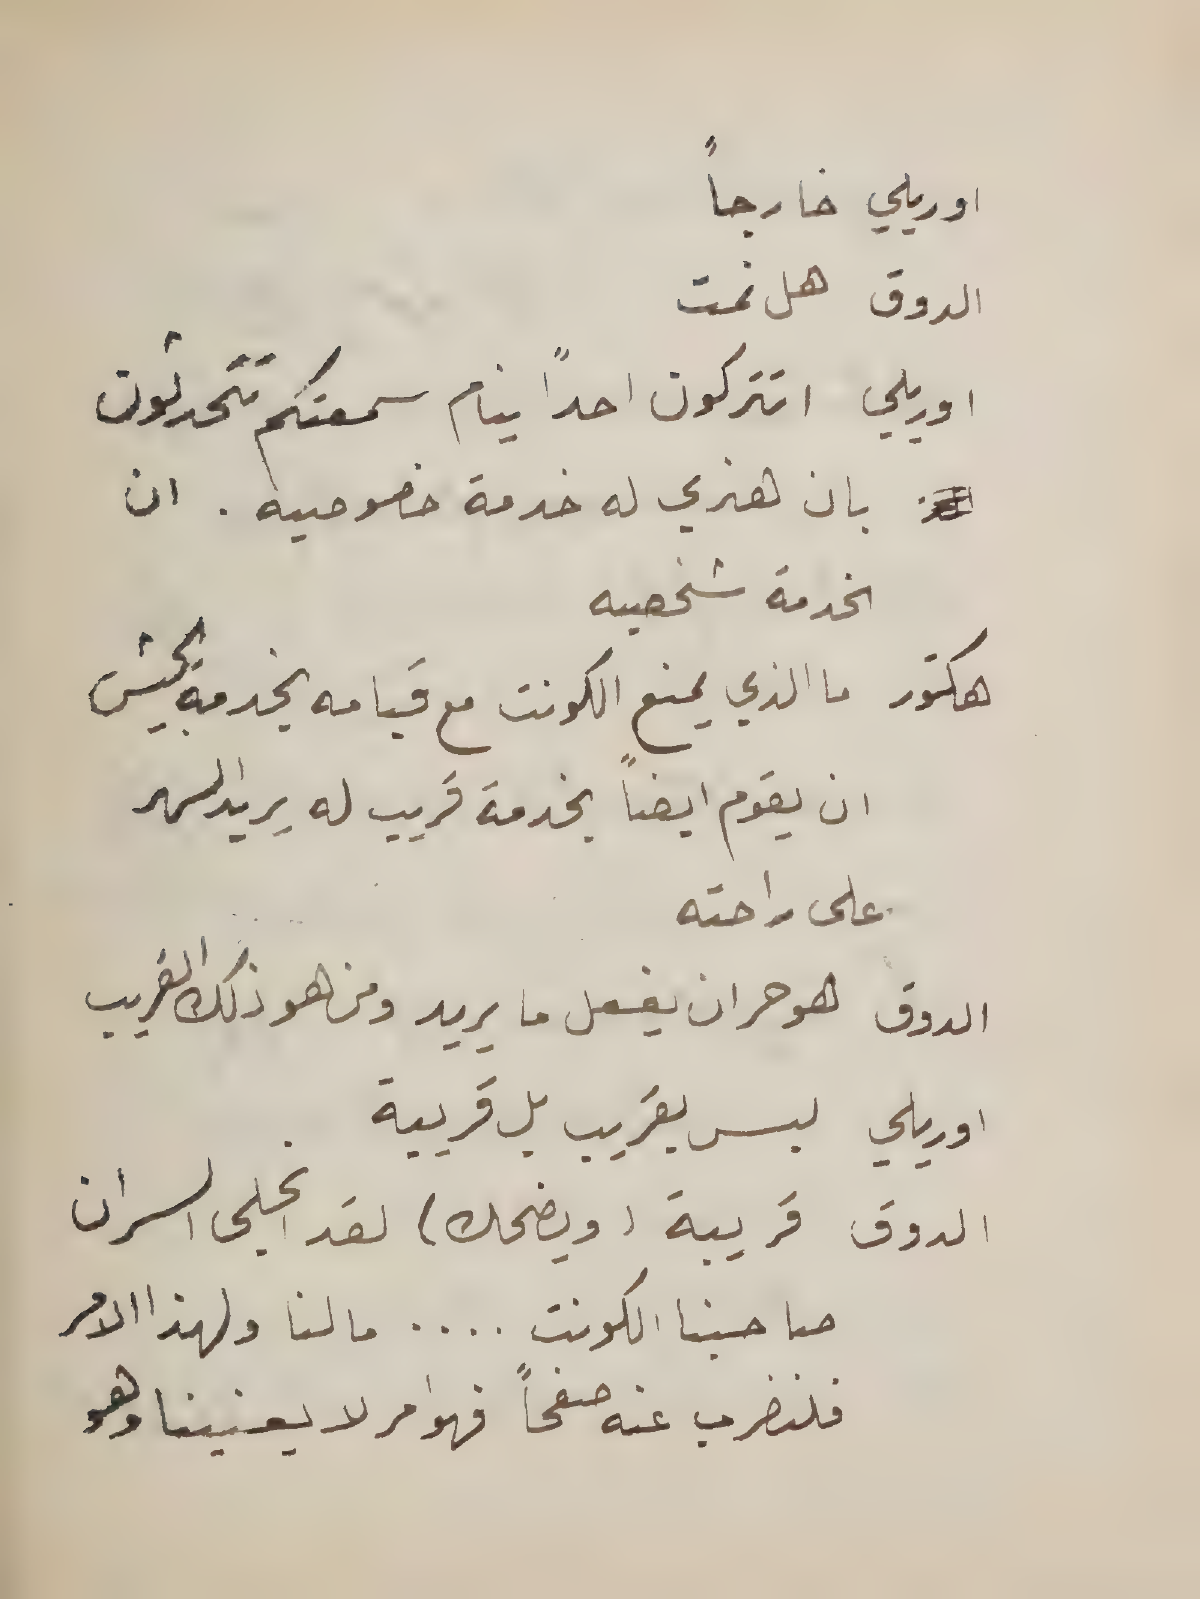 اوريلي خارجاً
الدوق هل نمت
اوريلي اتتركون احداً ينام سمعتكم تتحدثون
بان هنري له خدمة خصوصيه . ان
لخدمة شخصيه
هكتور ما الذي يمنع الكونت مع قيامه بخدمة الجيش
ان يقوم ايضاً بخدمة قريب له يريد السهر
على راحته
الدوق هو حر ان يفعل ما يريد ومن هو ذلك القريب
اوريلي ليس بقريب بل قريبة
الدوق قريبة (ويضحك) لقد انجلى السر ان
صاحبنا الكونت .... مالنا ولهذا الامر
فلنضرب عنه صفحاً فهو امر لا يعنينا وهو